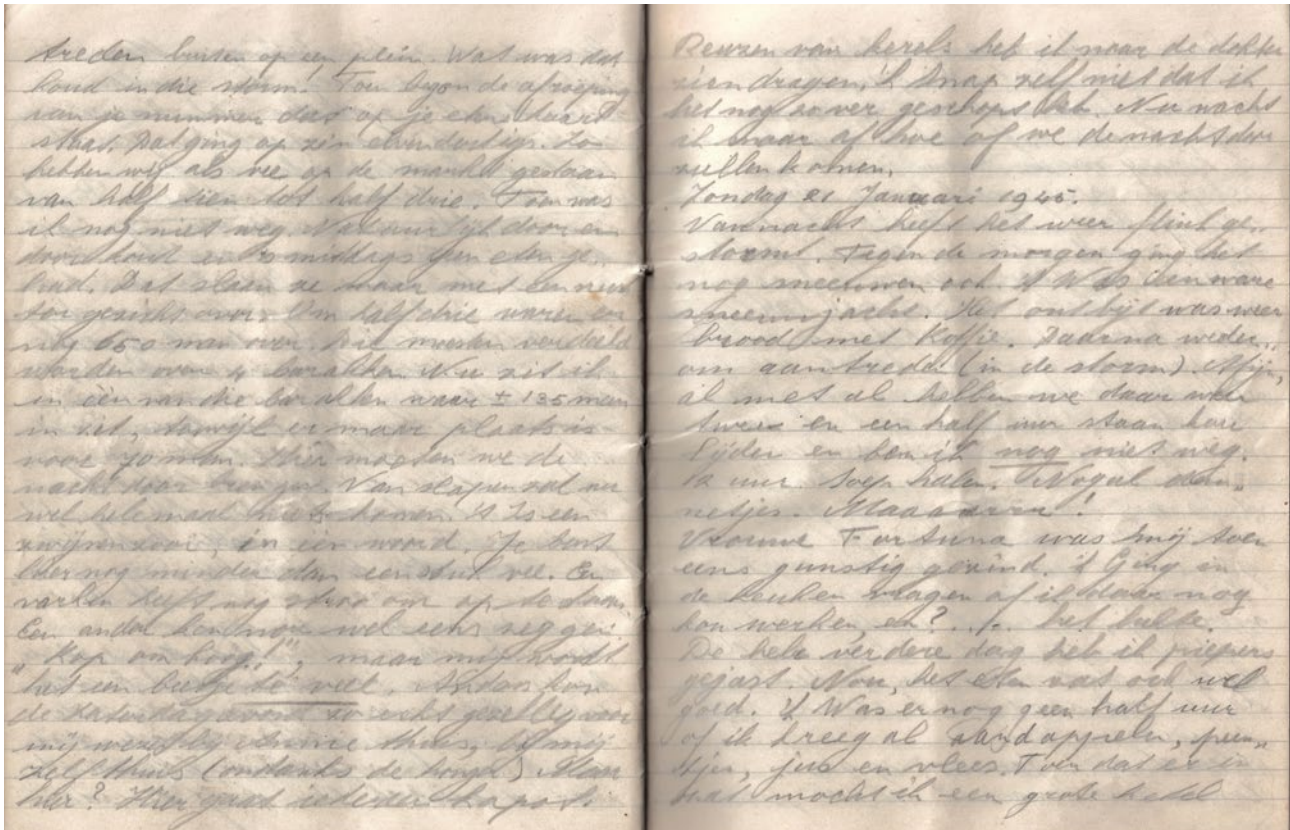 treden buiten op een plein. Wat was dat
koud in die storm. Toen begon de afroeping
van je nummer dat op je etenskaart
staat. Dat ging op z'n elvendertigst. Zo
hebben wij als vee op de markt gestaan
van half tien tot half drie. Toen was
ik nog niet weg. Natuurlijk door en
door koud en 's middags geen eten ge„
had. Dat slaan ze maar met een
gezicht over. Om half drie waren er
nog 650 man over. Die moesten verdeeld
worden over 4 barakken. Nu zit ik
in één van die barakken waar ± 135 man
in zit, terwijl er maar plaats is
voor 70 man. Hier moeten we de
nacht door brengen. Van slapen zal nu
wel helemaal niets komen. 't Is een
zwijnenzooi, in één woord. Je bent
hier nog minder dan een stuk vee. Een
varken heeft nog stroo om op te staan.
Een ander kan nou wel eens zeggen:
„Kop omhoog!", maar mij wordt
het een beetje te veel. Anders kon
de zaterdagavond zo echt gezellig voor
mij wezen bij thuis, bij mij
zelf thuis (ondanks de honger). Maar
hier? Hier gaat iedereen kapot.
Reuzen van kerels heb ik naar de dokter
zien dragen, 'k snap zelf niet dat ik
het nog zover geschopt heb. Nu wacht
ik maar af hoe of we de nacht door
zullen komen.
Zondag 21 Januari 1945.
Vannacht heeft het weer flink ge„
stormd. Tegen de morgen ging het
nog sneeuwen ook. 't Was een ware
sneeuwjacht. Het ontbijt was weer
brood met koffie. Daarna weder„
om aantreden (in de storm). Afijn,
al met al hebben we daar weer
twee en een half uur staan kou
lijden en ben ik nog niet weg.
12 uur soep halen. Nogal dun„
netjes. Maaaarrr!
Vrouwe Fortuna was mij toen
eens gunstig gezind. 'k Ging in
de keuken vragen of ik daar nog
kon werken, en? . . . het lukte.
De hele verdere dag heb ik piepers
gejast. Nou, het eten was ook wel
goed. 't Was er nog geen half uur
of ik kreeg al aardappelen, peen„
tjes, jus en vlees. Toen dat er in
zat mocht ik een grote ketel